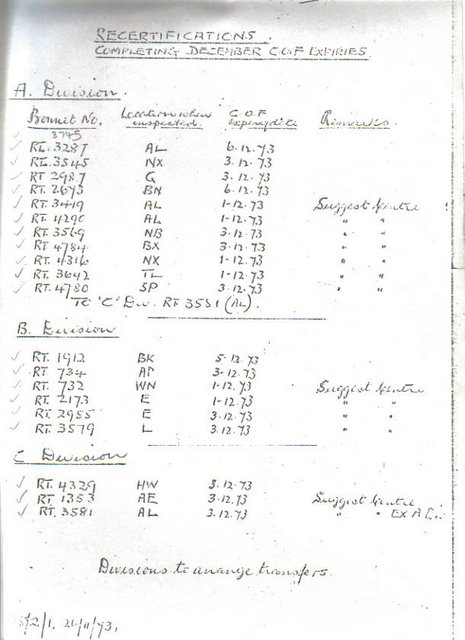 RECERTIFICATIONS.
COMPLETING DECEMBER C.O.F EXPIRIES.
A. Division.
Bonnet No. Location when inspected. C.O.F expiry date Remarks.
3745
RT. 3287 AL 6.12.73
RT. 3545 NX 3.12.73
RT 2987 G 3.12.73
RT 2673 BN 6.12.73
RT 3419 AL 1-12.73 Suggest
RT. 4290 AL 1-12.73 " "
RT. 3569 NB 3.12.73 " "
RT 4784 BX 3.12.73 " "
RT. 4316 NX 1-12.73 " "
RT. 3642 TL 1-12.73 " "
RT. 4780 SP 3.12.73 " "
To 'C' Div. RT 3581 (AL)
B. Division
RT. 1912 BK 5.12.73
RT 734 AP 3-12.73
RT. 732 WN 1-12.73 Suggest
RT. 2173 E 1-12.73 " "
RT. 2955 E 3.12.73 " "
RT. 3579 L 3.12.73 " "
C Division
RT. 4329 HW 3.12.73
RT 1353 AE 3.12.73 Suggest
RT. 3581 AL 3.12.73 " " EX A
Divisions to arrange transfers.